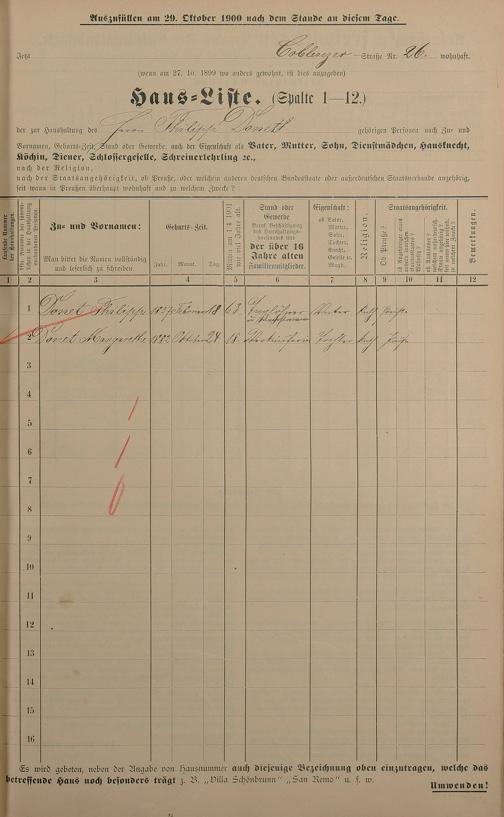 Auszufüllen am 29. Oktober 1900 nach dem Stande an diesem Tage.
Jetzt Coblenzer-Straße Nr. 26. wohnhaft.
(wenn am 27. 10. 1899 wo anders gewohnt, ist dies anzugeben)
Haus-Liste. (Spalte 1—12.)
der zur Haushaltung des Herrn Philipp Donett gehörigen Personen nach Zu- und
Vornamen, Geburts-Zeit, Stand oder Gewerbe, nach der Eigenschaft als Vater, Mutter, Sohn, Dienstmädchen, Hausknecht,
Köchin, Diener, Schlossergeselle, Schreinerlehrling 2c.,
nach der Religion,
nach der Staatsangehörigkeit, ob Preuße, oder welchem anderen deutschen Bundesstaate oder außerdeutschen Staatsverbande angehörig,
seit wann in Preußen überhaupt wohnhaft und zu welchem Zwecke?
Zu- und Vornamen:
Man bittet die Namen vollständig
und leserlich zu schreiben.
Geburts-Zeit.
Jahr. Monat. Tag.
Stand oder
Gewerbe
der über 16
Jahre alten
Familienmitglieder.
Eigenschaft:
ob Vater,
Mutter,
Sohn,
Tochter,
Knecht,
Geselle u.
Magd.
Religion.
Staatsangehörigkeit.
Ob Preuße?
Bemerkungen.
1 2 3 4 5 6 7 8 9 10 11 12
1 Donet Philipp 1837 Februar 18 63 Taglöhner Vater Kath Preuße
2 Donet Margarethe 1882 Oktober 24 18 Verkäuferin Tochter Kath Preuße
3
4
5
6
7
8
9
10
11
12
13
14
15
16
Es wird gebeten, neben der Angabe von Hausnummer auch diejenige Bezeichnung oben einzutragen, welche das
betreffende Haus noch besonders trägt z. B. „Villa Schönbrunn" „San Remo" u. s. w.
Umwenden!